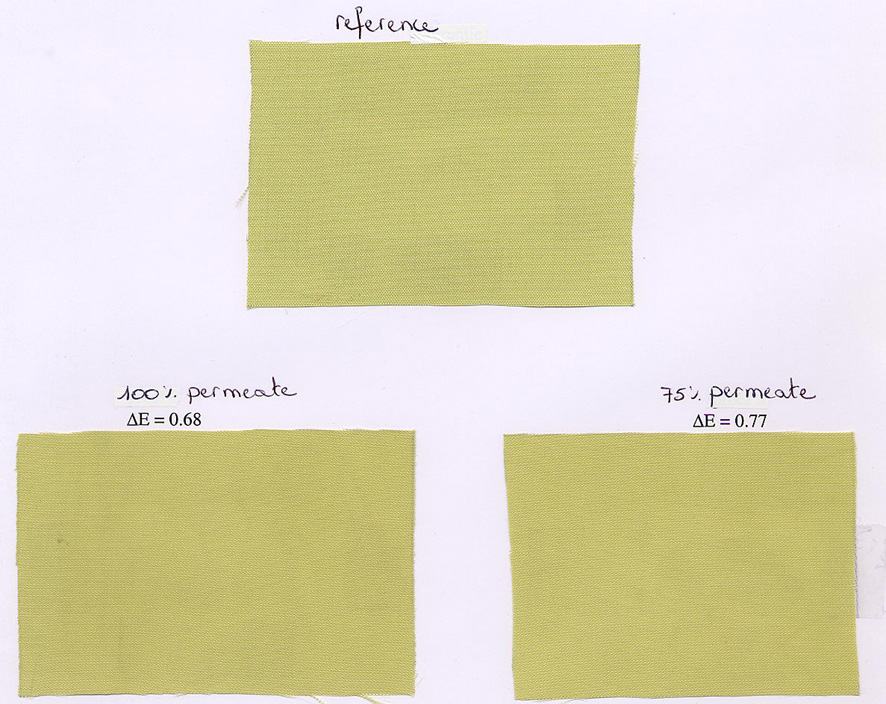 reference
100% permeate
ΔE = 0.68
75% permeate
ΔE = 0.77